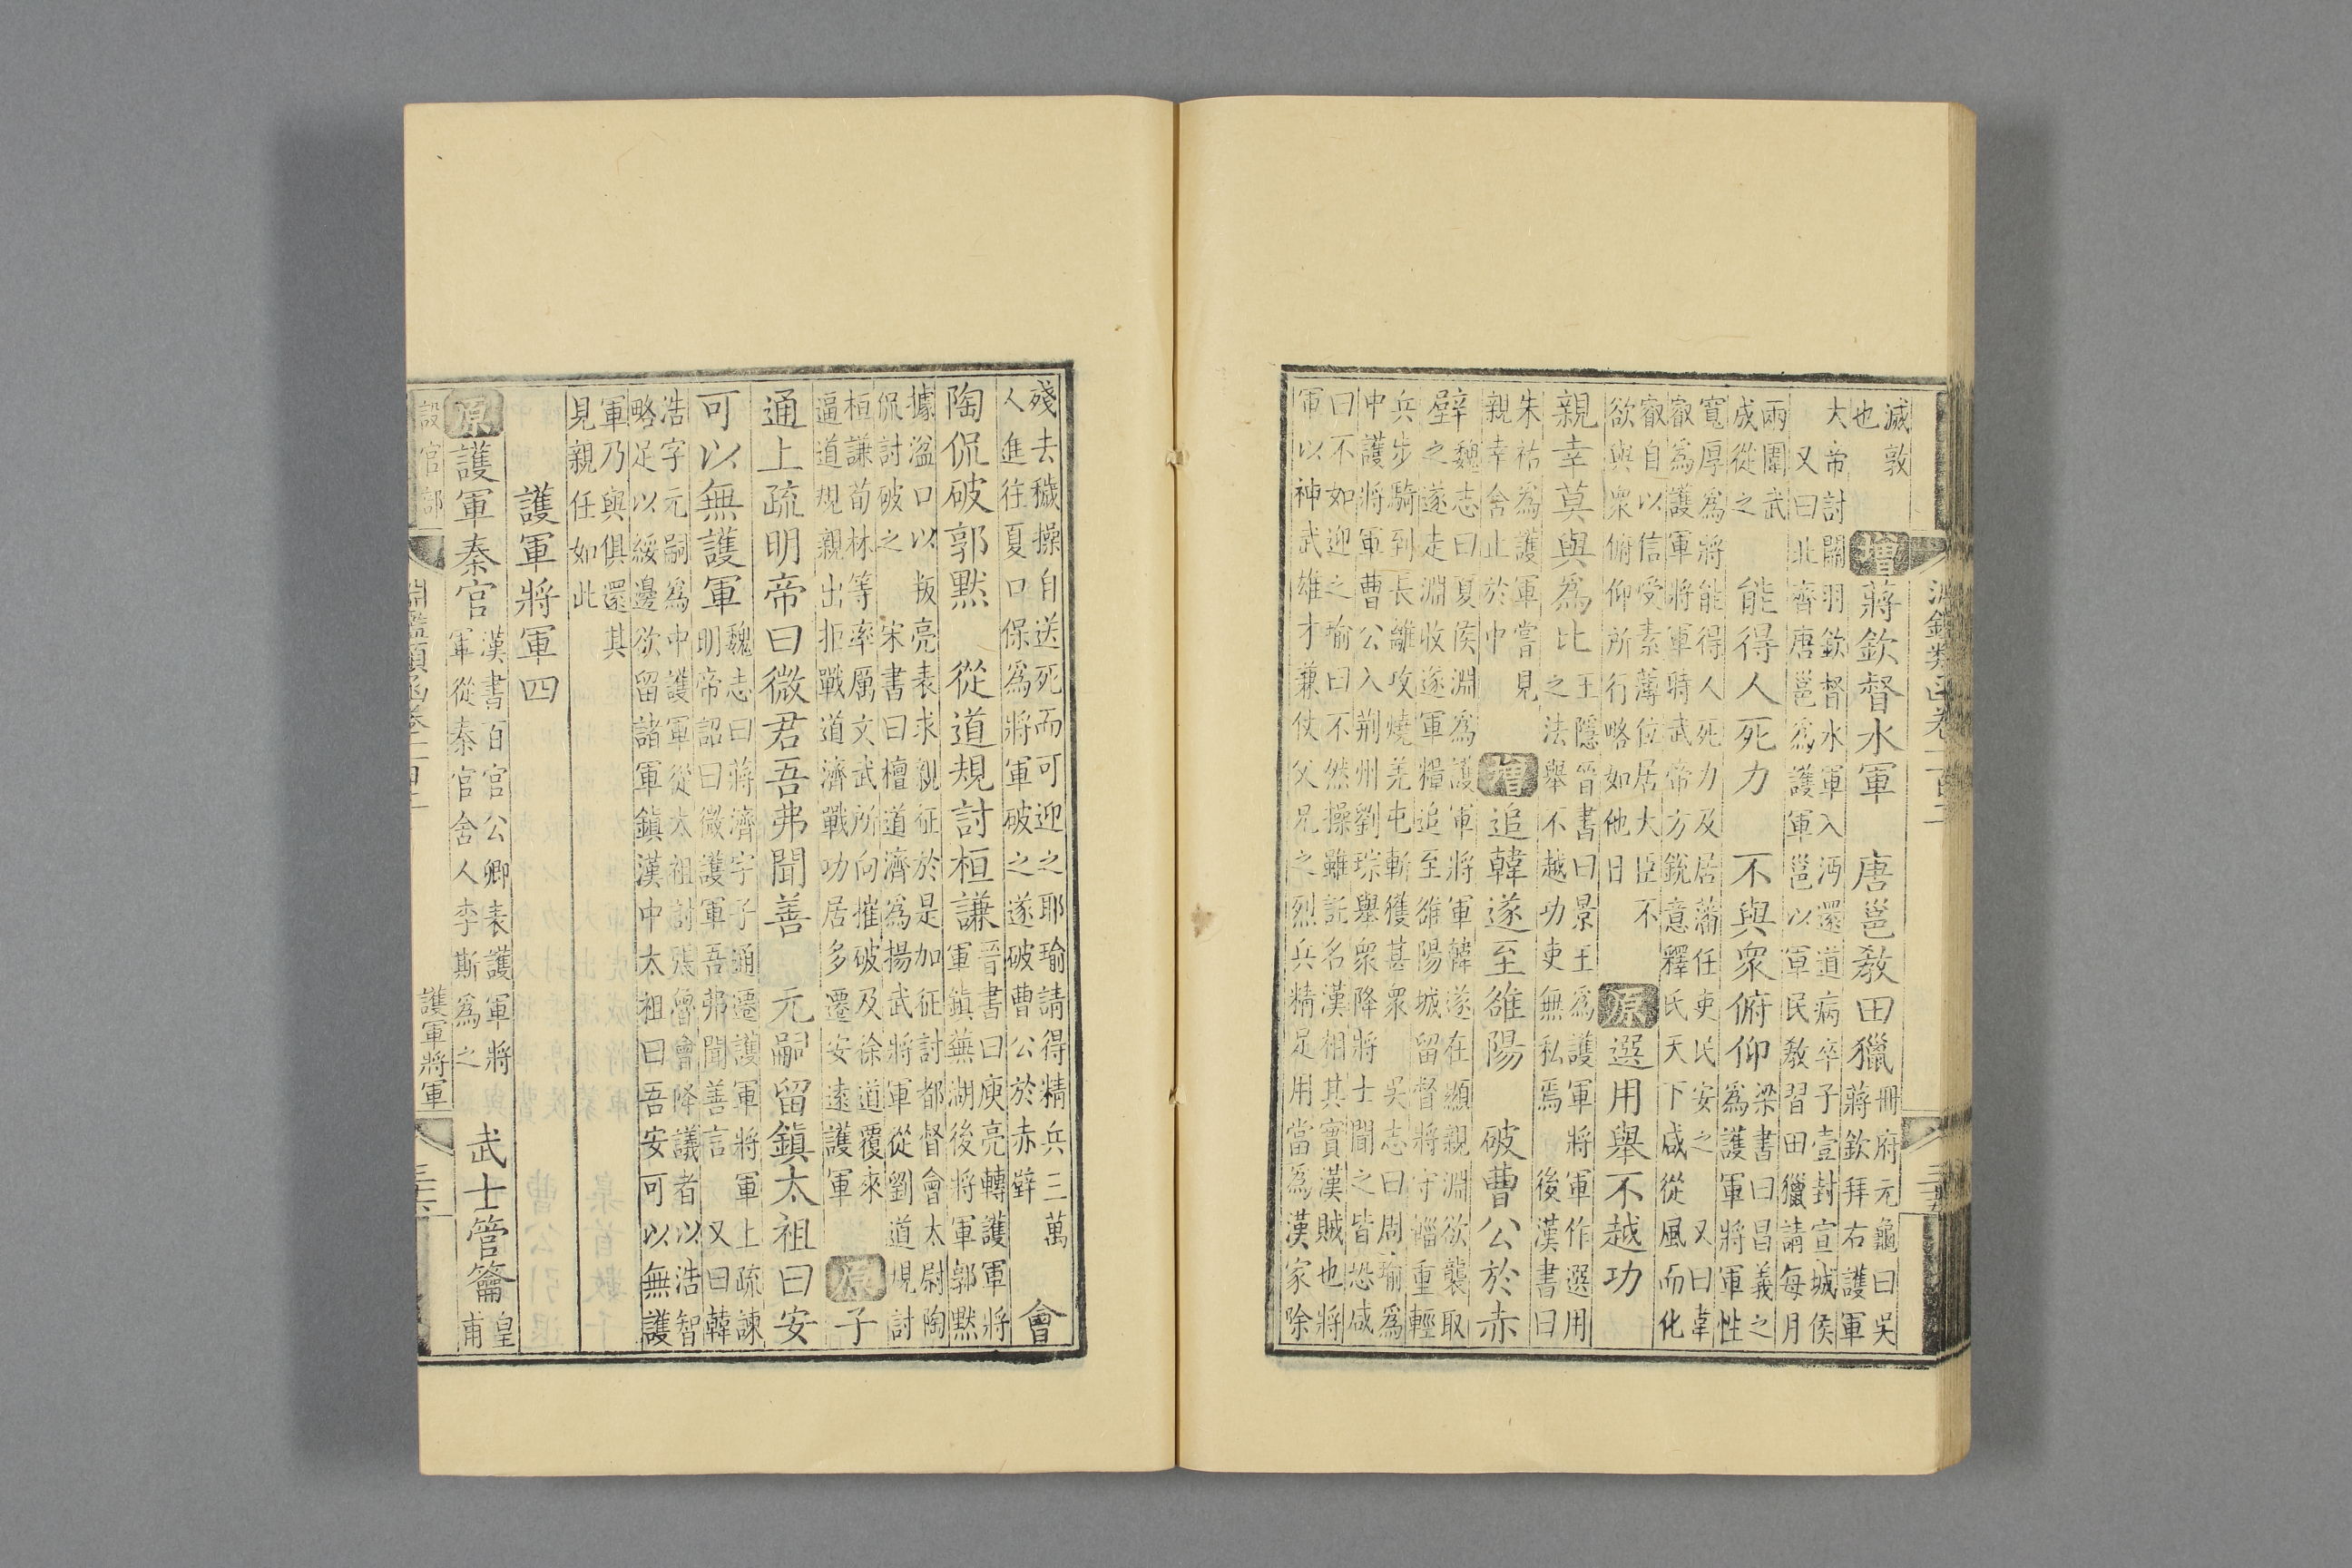 淵鑑類函卷一百十
滅敦
也
增蔣欽督水軍　唐邕教田獵
冊府元龜曰吳
蔣欽拜右護軍
大帝討關羽欽督水軍入沔還道病卒子壹封宣城侯
又曰北齊唐邕為護軍邕以軍民教習田獵請每月
兩圍武
成從之
能得人死力　不與衆俯仰
梁書曰昌義之
為護軍將軍性
寬厚為將能得人死力及居藩任吏民安之　又曰韋
叡為護軍將軍時武帝方銳意釋氏天下咸從風而化
叡自以信受素薄位居大臣不
欲與衆俯仰所行略如他日
原選用舉不越功
親幸莫與為比
王隱晉書曰景王為護軍將軍作選用
之法舉不越功吏無私焉　後漢書曰
朱祐為護軍嘗見
親幸舍止於中
增追韓遂至雒陽　破曹公於赤
壁
魏志曰夏侯淵為護軍將軍韓遂在顯親淵欲襲取
之遂走淵收遂軍糧追至雒陽城留督將守輜重輕
兵步騎到長離攻燒羌屯斬獲甚衆　吳志曰周瑜為
中護將軍曹公入荊州劉琮舉衆降將士聞之皆恐咸
曰不如迎之瑜曰不然操雖託名漢相其實漢賊也將
軍以神武雄才兼仗父兄之烈兵精足用當為漢家除
殘去穢操自送死而可迎之耶瑜請得精兵三萬
人進往夏口保為將軍破之遂破曹公於赤壁
會
陶侃破郭默　從道規討桓謙
晉書曰庾亮轉護軍將
軍鎮蕪湖後將軍郭默
據湓口以叛亮表求親征於是加征討都督會太尉陶
侃討破之　宋書曰檀道濟為揚武將軍從劉道規討
桓謙荀林等率厲文武所向摧破及徐道覆來
逼道規親出拒戰道濟戰功居多遷安遠護軍
原子
通上疏明帝曰微君吾弗聞善　元嗣留鎮太祖曰安
可以無護軍
魏志曰蔣濟字子通遷護軍將軍上疏諫
明帝詔曰微護軍吾弗聞善言　又曰韓
浩字元嗣為中護軍從太祖討張魯會降議者以浩智
略足以綏邊欲留諸軍鎮漢中太祖曰吾安可以無護
軍乃與俱還其
見親任如此
護軍將軍四
原護軍秦官
漢書百官公卿表護軍將
軍從秦官官舍人李斯為之
武士管籥
皇
甫
設官部
淵鑑類函卷一百十
護軍將軍